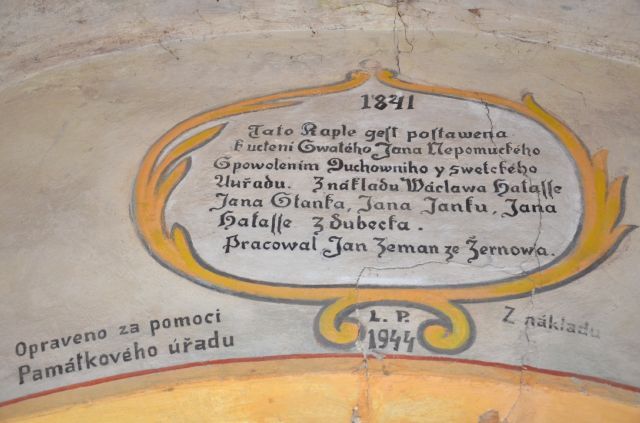 1841
Tato Kaple gest postawena
k uctení Swatého Jana Nepomuckého
Spowolením Duchowniho y swetckého
Auřadu. Z nákladu Wáclawa Hatasse
Jana Stanka, Jana Janku, Jana
Hatasse z dubecka.
Pracowal Jan Zeman ze Žernowa.
L. P.
1944
Opraveno za pomoci
Památkového úřadu
Z nákladu